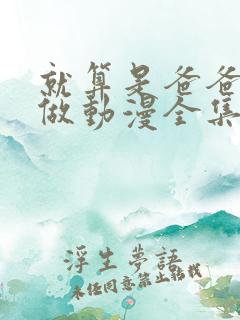 就算是爸爸
做動漫全集
浮生夢語
未經同意禁止轉載